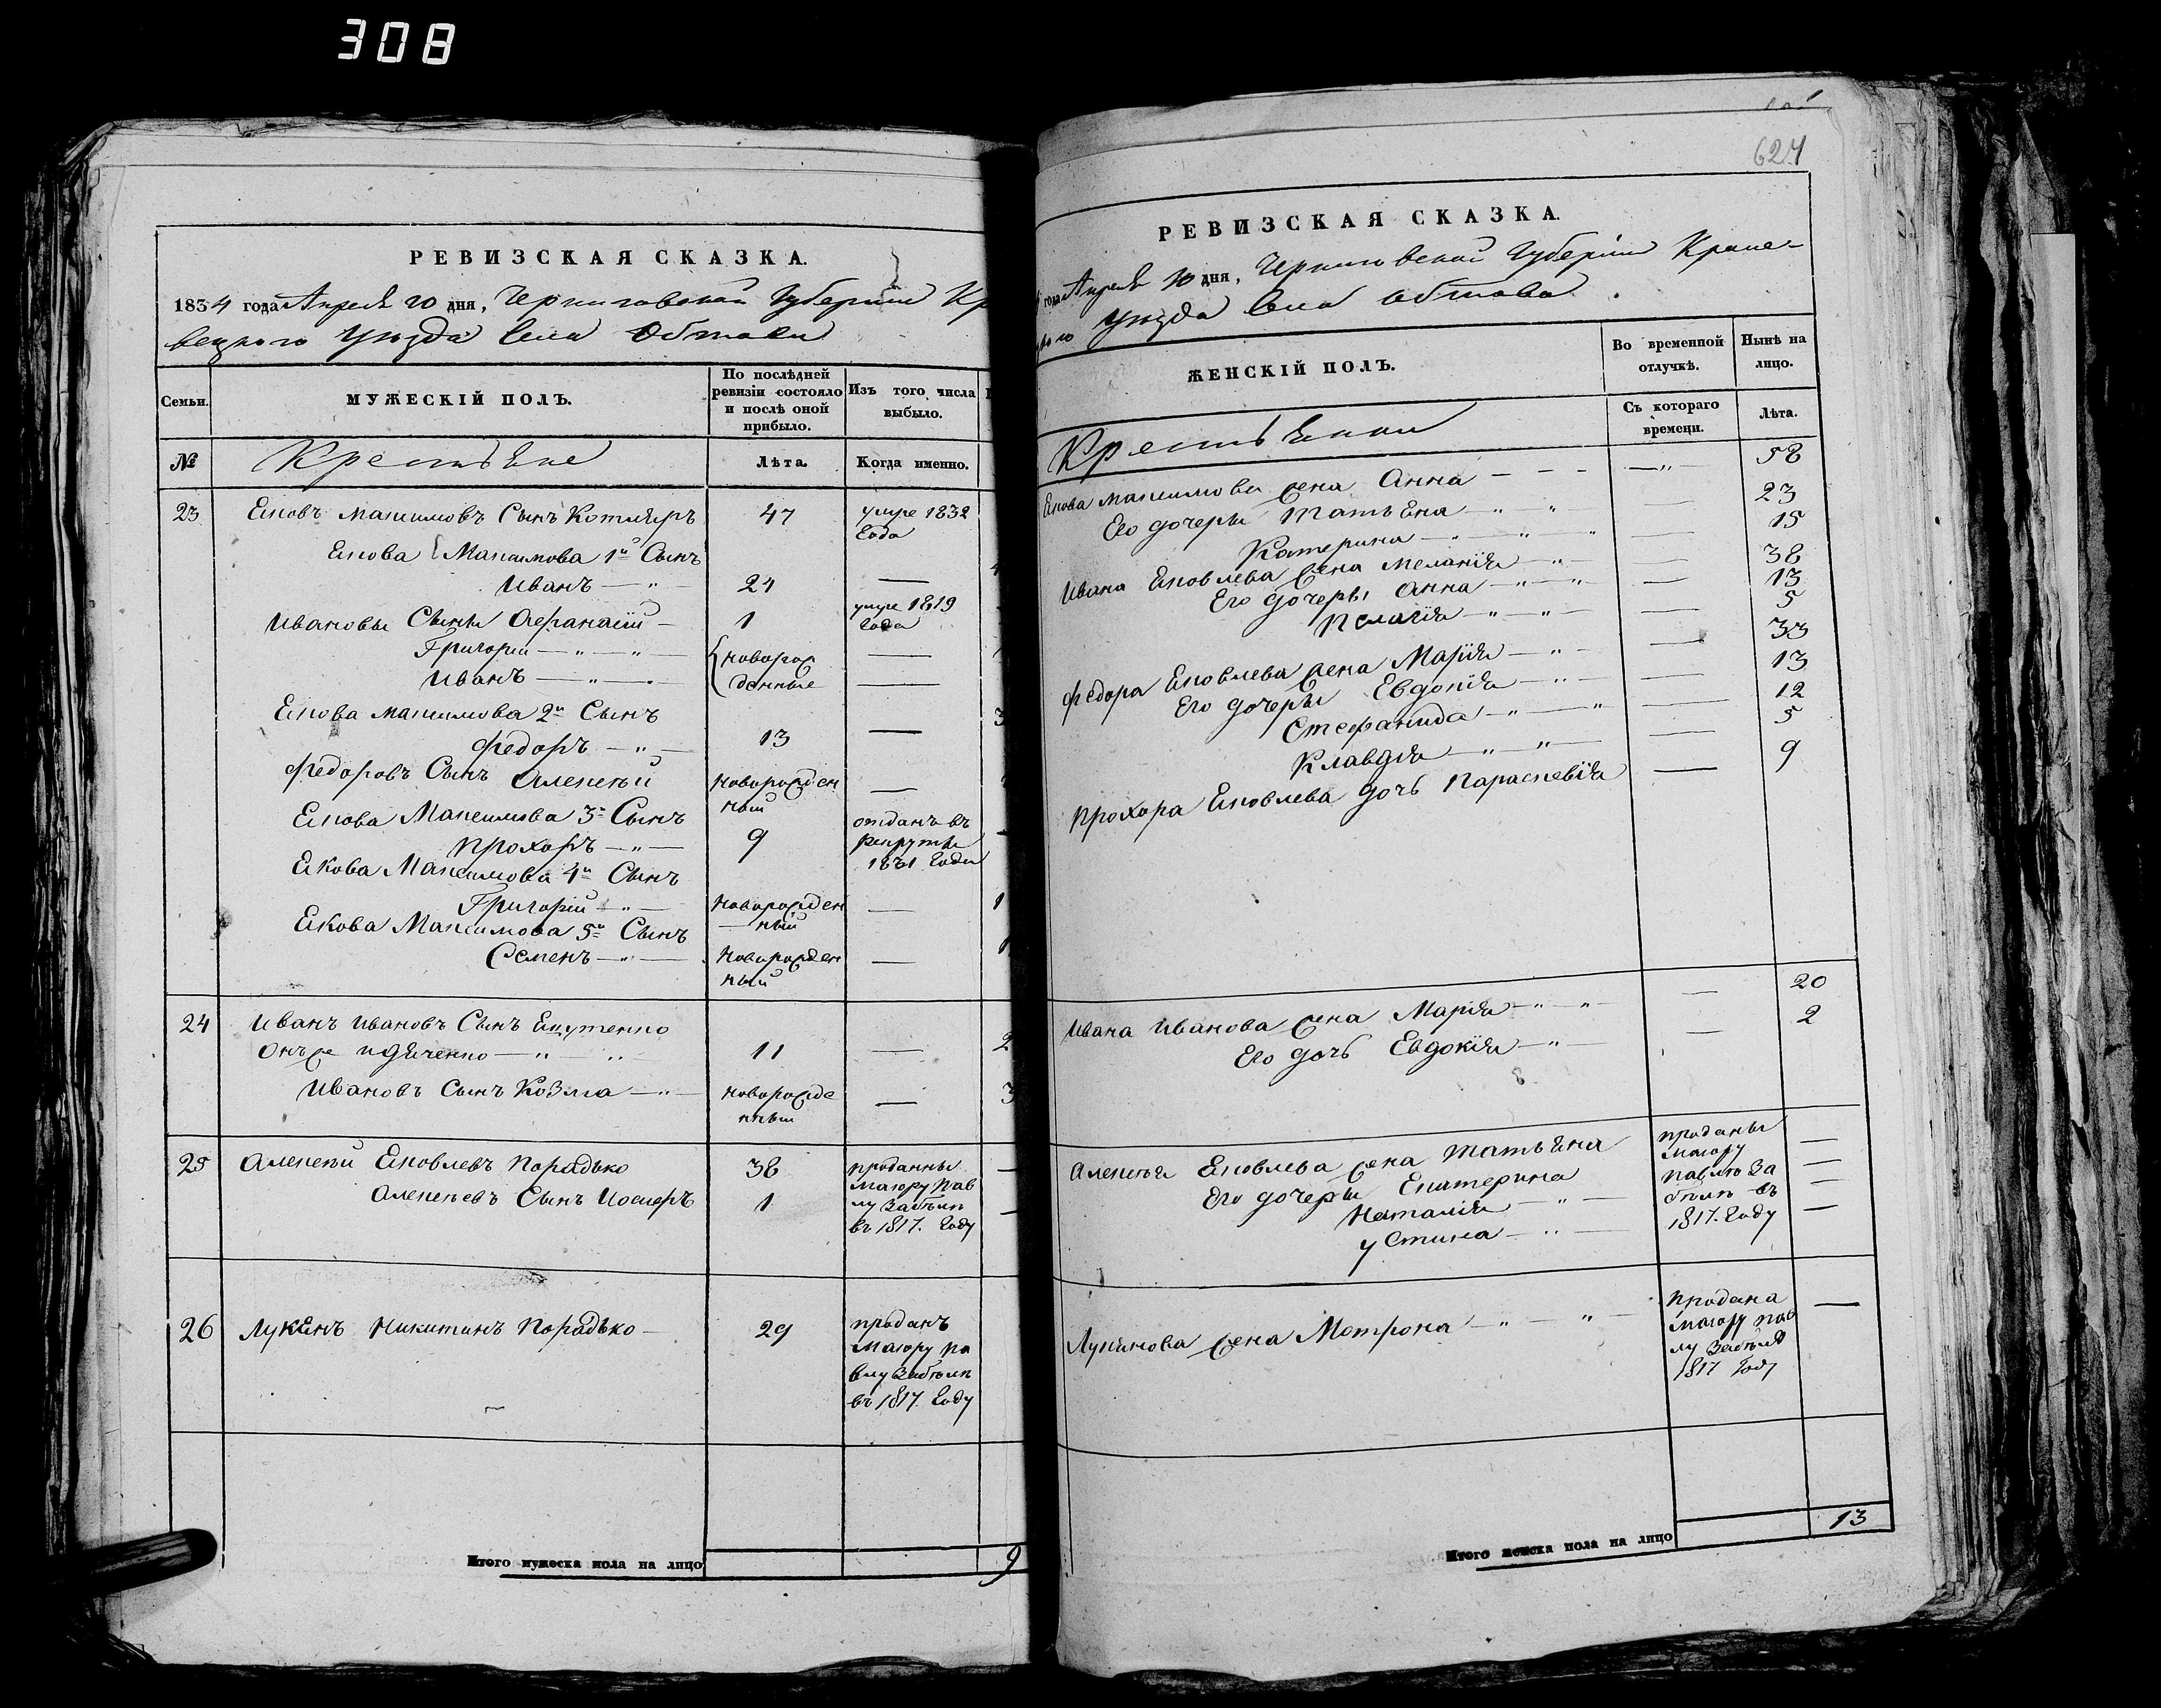 308
РЕВИЗСКАЯ СКАЗКА.
1834 года Апреля 20 дня, Черниговской Губернии Кр
вецкого Уезда Села Обтова
Семьи.
МУЖЕСКІЙ ПОЛЪ.
По послѣдней
ревизіи состояло
и послѣ оной
прибыло.
Изъ того числа
выбыло.
№
Крестьяне
Лѣта.
Когда именно.
23 Яковъ Максимовъ Сынъ Котляръ 47 умре 1832
года
Якова Максимова 1й Сынъ
Иванъ — 〃 — 24 —
Ивановы Сыны Афанасій — 1 умре 1819
года
Григорій — 〃 — 〃 — новорож —
Иванъ — 〃 — денные —
Якова Максимова 2й Сынъ
Федоръ — 〃 — 13 —
Федоровъ Сынъ Алексѣй новорожден —
ный
Якова Максимова 3й Сынъ отданъ въ
Прохоръ — 〃 — 9 рекруты
1831 года
Якова Максимова 4й Сынъ
Григорій — 〃 — новорожден — 1
ный
Якова Максимова 5й Сынъ
Семенъ — 〃 — новорожден —
ный
24 Иванъ Ивановъ Сынъ
Онъже — 〃 — 〃 11 — 2
Ивановъ Сынъ Козма — 〃 — новорожде — 3
нный
25 Алексѣй Яковлевъ Порадько 38 проданны —
Маіору Пав
Алексѣевъ Сынъ Іосифъ 1 лу Забѣлѣ —
въ 1817. Году
26 Лукянъ Никитинъ Порадько — 29 проданъ
Маіору Па
влу Забѣлѣ
въ 1817. Году
Итого мужеска пола на лицо 9
627
РЕВИЗСКАЯ СКАЗКА.
года Апреля 20 дня, Черниговской Губерніи Кроле-
Уезда Села Обтова.
ЖЕНСКІЙ ПОЛЪ.
Во временной
отлучкѣ.
Нынѣ на
лицо.
Съ котораго
времени.
Лѣта.
Крестьянки
Якова Максимова жена Анна — — — — 〃 — 58
Его дочеры Татьяна — 〃 〃 — 23
Катерина — 〃 — 〃 — 〃 — 15
Ивана Яковлева жена Меланія — 〃 — — 38
Его дочеры Анна — 〃 — 〃 — — 13
Пелагія — 〃 — 〃 — — 5
Федора Яковлева жена Марія — 〃 — — 33
Его дочеры Евдокія — 〃 — — 13
Стефанида — 〃 — 〃 — 12
Клавдія — 〃 — 〃 — — 5
Прохора Яковлева дочь Параскевія — 9
Ивана Иванова жена Марія — 〃 — 〃 — — 20
Его дочь Евдокія — 〃 — — 2
Алексѣя Яковлева жена Татьяна проданы —
Маіору
Его дочеры Екатерина Павлу За —
Наталія — 〃 — бѣлѣ въ —
Устина — 〃 — 1817. Году —
Лукянова жена Мотрона — 〃 — 〃 — продана —
Маіору Пав
лу Забѣлѣ
1817 Году
Итого женска пола на лицо 13